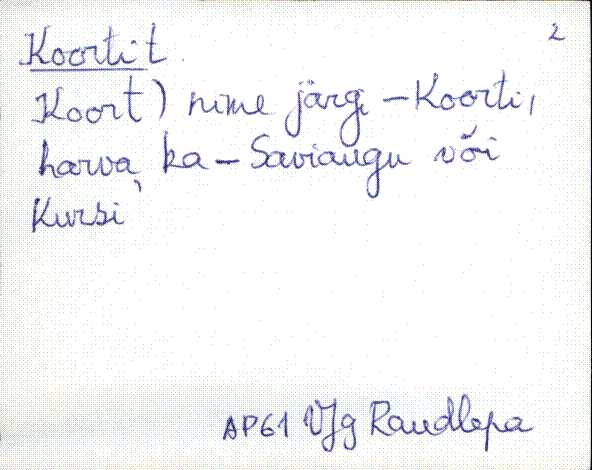 2
Koorti : t
Koort) nime järgi – Koorti,
harva, ka – Saviaugu või
Kursi
AP61 VJg Raudlepa